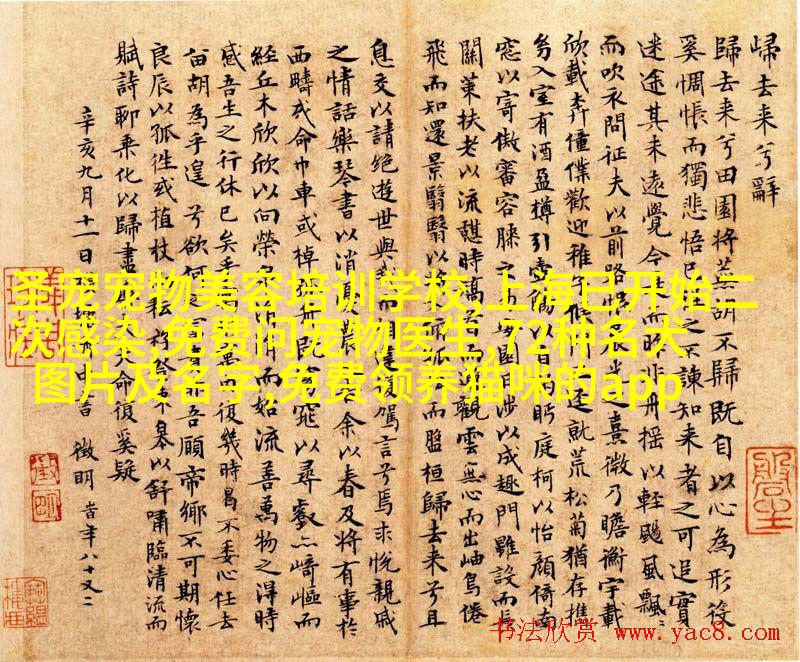 歸去来兮辭
歸去来兮田園將蕪胡不歸既自以心為形役
奚惆悵而獨悲悟之不諫知来者之可追實
迷途其未遠覺今而昨非舟摇以軽颺風飄〻
而吹衣問征夫以前路恨之熹微乃瞻衡宇載
欣載奔僮僕歡迎稚子候逕就荒松菊猶存攜
幼入室有酒盈樽引壺觴以自眄庭柯以怡顔倚南
窓以寄傲審容膝園涉以成趣門雖設而長
關策扶老以流憩時矯首而觀雲無心而出岫鳥倦
飛而知還景翳翳以將孤而盤桓歸去来兮且
息交以請絶遊世與我而復駕言兮焉求悦親戚
之情話樂琴書以消憂農余以春及將有事於
西疇或命巾車或棹孤既窕以尋壑亦崎嶇而
經丘木欣欣以向榮涓而始流善萬物之得時
感吾生之行休已矣乎復幾時曷不委心任去
留胡為乎遑兮欲何吾願帝鄉不可期懷
良辰以孤徃或植杖耘耔皋以舒嘯臨清流而
賦詩聊乘化以歸盡命復奚疑
辛亥九月十一日中書徵明時年八十又二
圣宠宠物美容培训学校,上海已开始二
次感染,免费问宠物医生,72种名犬
图片及名字,免费领养猫咪的app
书法欣赏 www.yac8.com